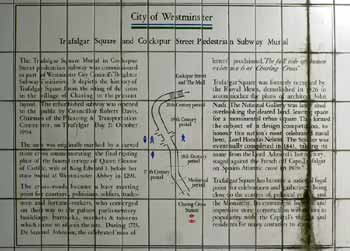 City of Westminster
Trafalgar Square and Cockspur Street Pedestrian Subway Mural
The Trafalgar Square Mural in Cockspur
Street pedestrian subway was commissioned
as part of Westminster City Council's Brighter
Subway Initiative. It depicts the history of
Trafalgar Square from the siting of the cross
in the village of Charing to the present
layout. The refurbished subway was opened
to the public by Councillor Robert Davis,
Chairman of the Planning & Transportation
Committee, on Trafalgar Day 21 October
1994
The area was originally marked by a carved
stone cross commemorating the final resting
place of the funeral cortege of Queen Eleanor of
Castile, wife of King Edward I, before her
state burial at Westminster Abbey in 1291.
The cross-roads became a busy meeting
point for courtiers, politicians, soldiers, traders
and fortune-seekers, who converged
on their way to the palace, parliamentary
buildings, barracks, markets & taverns
which came to adorn the site. During 1775,
Dr Samuel Johnson, the celebrated man of
Cockspur Street
and The Mall
20th Century
period
19th Century
period
18th Century
period
17th Century
period
Mediaeval
period
Charing Cross
Station
letters proclaimed, The full tide of human
existence is at Charing Cross
Trafalgar Square was formerly occupied by
the Royal Mews, demolished in 1826 to
accommodate the plans of architect John
Nash. The National Gallery was later sited
overlooking the cleared land, leaving space
for a monumental urban square. This formed
the subject of a design competition, to
honour this nation's most celebrated naval
hero, Lord Horatio Nelson. The square was
eventually completed in 1841, taking its
name from the Lord Admiral's last victory,
waged against the French off Cape Trafalgar
on Spain's Atlantic coast in 1805.
Trafalgar Square has become a national focal
point for celebrations and gatherings. Being
close to the centres of political power and
the Monarchy. Its ceremonial layout and
impressive stone construction will continue to